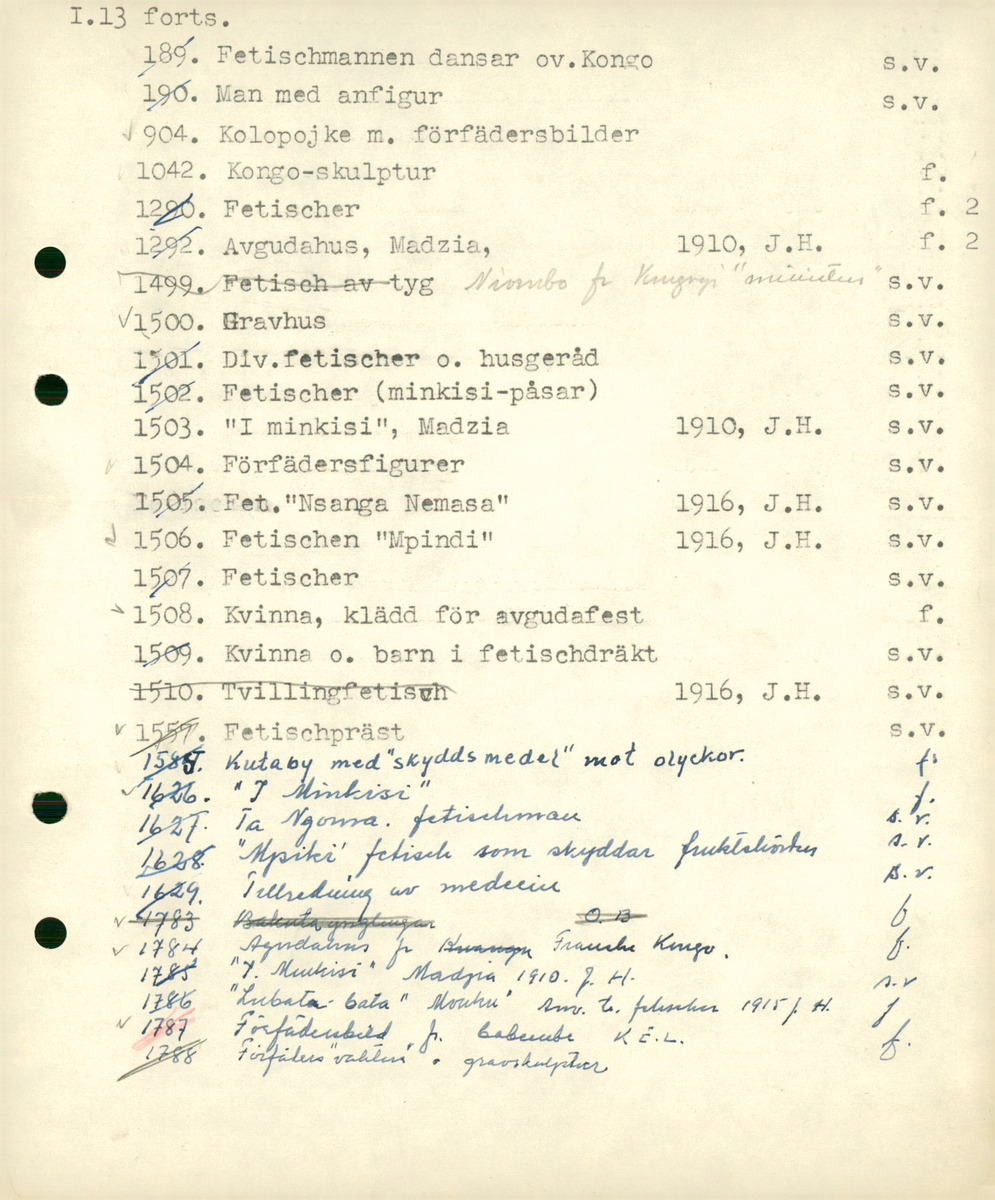 I.13 forts.
189. Fetischmannen dansar ov.Kongo s.v.
190. Man med anfigur s.v.
904. Kolopojke m. förfädersbilder
1042. Kongo-skulptur f.
1290. Fetischer f. 2
1292. Avgudahus, Madzia, 1910, J.H. f. 2
1499. Fetisch av tyg Niombo fr Kingoyi s.v.
1500. Gravhus s.v.
1501. Div.fetischer o. husgeråd s.v.
1502. Fetischer (minkisi-påsar) s.v.
1503. "I minkisi", Madzia 1910, J.H. s.v.
1504. Förfädersfigurer s.v.
1505. Fet."Nsanga Nemasa" 1916, J.H. s.v.
1506. Fetischen "Mpindi" 1916, J.H. s.v.
1507. Fetischer s.v.
1508. Kvinna, klädd för avgudafest f.
1509. Kvinna o. barn i fetischdräkt s.v.
1510. Tvillingfetisch 1916, J.H. s.v.
1557. Fetischpräst s.v.
Kutaby med "skyddsmedel" mot olyckor. f.
1626. "I Minkisi" f.
1627. Ta Ngoma. fetischman s.v.
1628. "Mpitki" fetisch som skyddar fruktskörden s.v.
1629. Tillredning av medecin s.v.
1783 Bakuta ynglingar O B f
1784 fr Franska Kongo. f.
1785 "I. Minkisi" Madzia 1910. J. H. s.v
1786 "Lubata-bata" 1915 J. H. f
1787 Förfädersbild fr. babembe K E. L. f.
1788 Förfäders o gravskulpturer